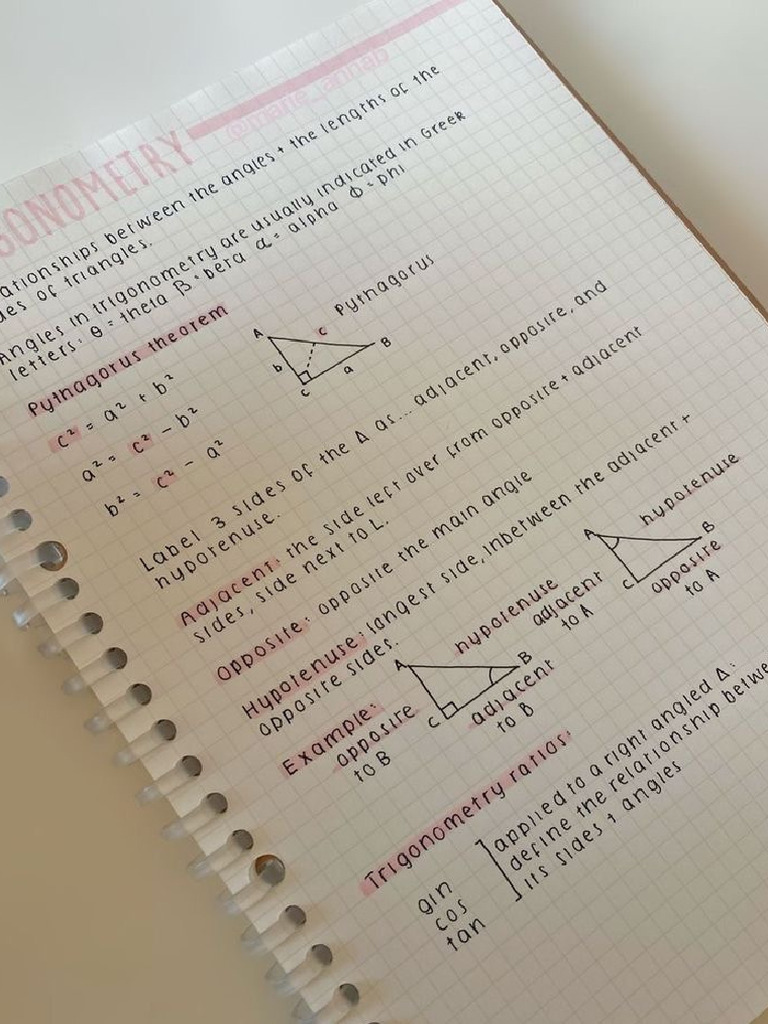 GONOMETRY
@marie_annab
ationships between the angles + the lengths of the
des of triangles.
Angles in trigonometry are usually indicated in Greek
letters: θ = theta β = beta α = alpha Φ = phi
Pythagorus theorem
Pythagorus
A c B
b a
C
c² = a² + b²
a² = c² - b²
b² = c² - a²
Label 3 sides of the Δ as... adjacent, opposite, and
hypotenuse.
Adjacent: the side left over from opposite + adjacent
sides, side next to L.
Opposite: opposite the main angle
Hypotenuse: langest side, inbetween the adjacent +
opposite sides.
Example:
A B
C
hypotenuse
opposite
to B
adjacent
to B
A B
C
hypotenuse
adjacent
to A
opposite
to A
Trigonometry ratios:
gin
cos
tan
applied to a right angled Δ:
define the relationship betwe
its sides + angles